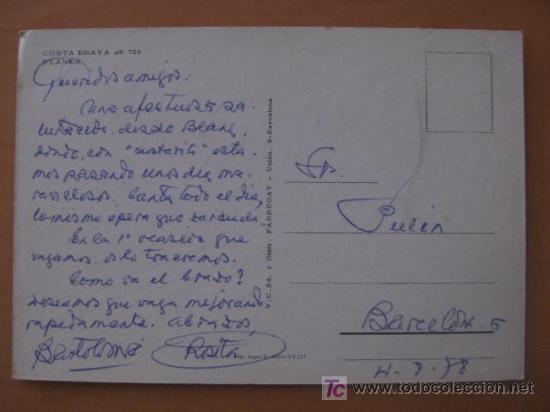 COSTA BRAVA nº 759
BLANES
Queridos amigos:
Una afectuosa sa-
lutación desde Blanes,
donde, con "                " esta-
mos pasando unos dias ma-
ravillosos. Canta todo el dia,
lo mismo opera que zarzuela.
En la 1ª ocasión que
vayamos os lo traeremos.
Como va el brazo?
Deseamos que vaya mejorando
rapidamente. Abrazos,
Bartolomé Rosita
V.C. Ed. y Distr. FABREGAT - Unión, 9-Barcelona
Sr.
Barcelona-5
4-8-78
TC todocoleccion.net